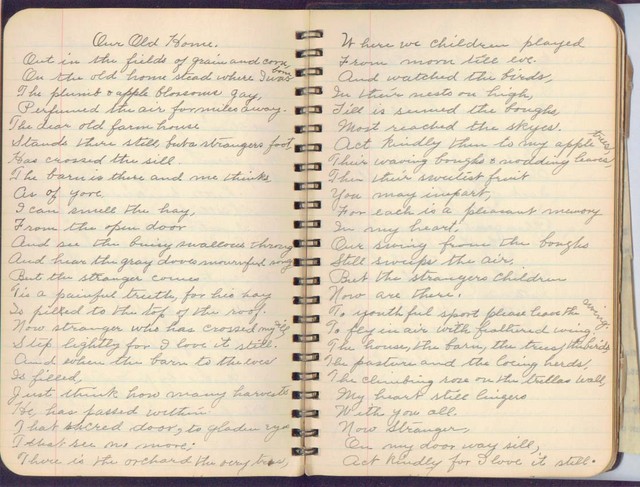 Our Old Home.
Out in the fields of grain and corn,
On the old home stead where I was born
The plumb & apple blossoms gay,
Perfumed the air for miles away.
The dear old farm house
Stands there still but a strangers foot
Has crossed the sill
The barn is there and me thinks
As of yore
I can smell the hay,
From the open door
And see the busy swallows throng
And hear the gray doves mournful song
But the stranger comes
Tis a painful truth, for his hay
Is filled to the top of the roof.
Now stranger who has crossed my sill
Step lightly for I love it still.
And when the barn to the eves
Is filled,
Just think how many harvests
He, has passed within
That sacred door, to gladen eyes
That see no more;
There is the orchard the very trees,
Where we children played
From morn till eve.
And watched the birds,
In their nests on high,
Till is seemed the boughs
Most reached the skyes.
Act kindly then to my apple trees,
Their waving boughs & nodding leaves,
Then their sweetist fruit
You may impart,
For each is a pleasant memory
In my heart,
Our swing from the boughs
Still sweeps the air,
But the strangers children
Now are there.
To youthful sport please leave the swing.
To fly in air with faltered wing
The house, the barn, the trees, the birds
The pasture and the locing herds,
The climbing rose on the trellas wall,
My heart still lingers
With you all.
Now Stranger,
On my door way sill,
Act kindly for I love it still.